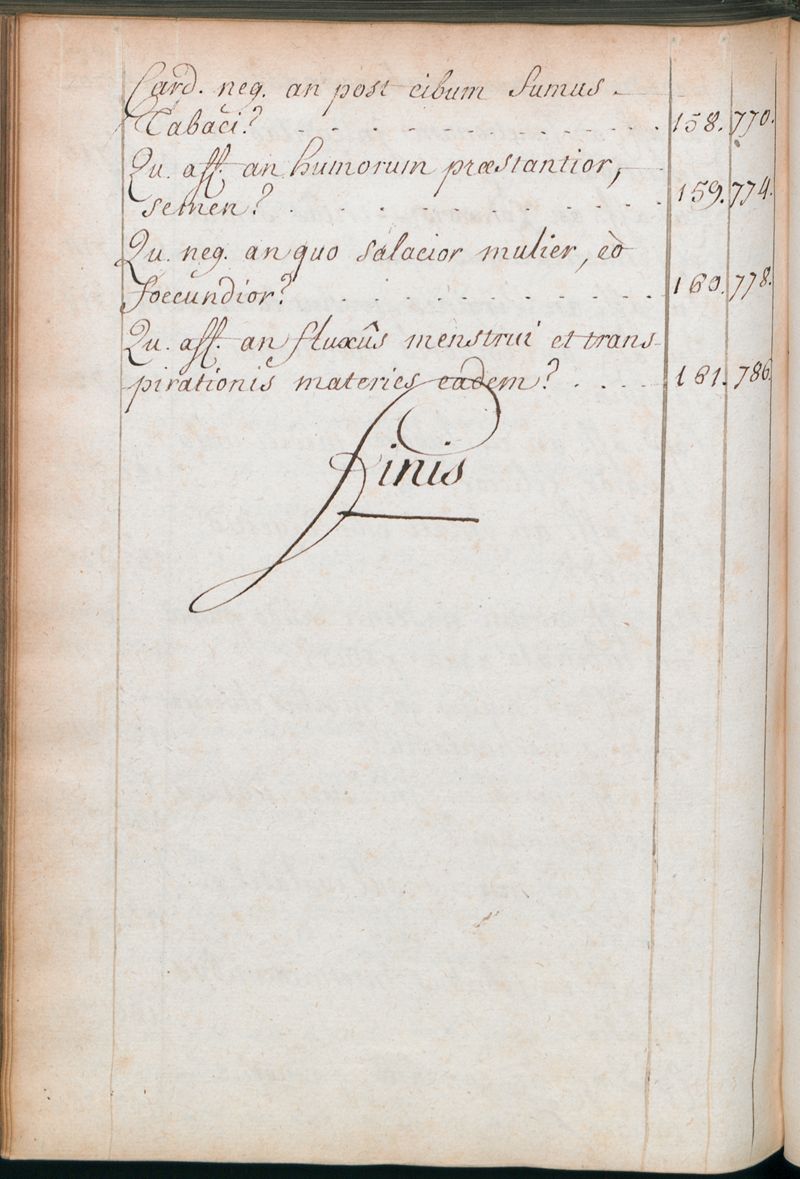 Card. neg. an post cibum fumus
Tabaci? . . . . . . . . . . . 158. 770.
Qu. aff. an humorum præstantior,
semen? . . . . . . . . . . . 159. 774.
Qu. neg. an quo salacior mulier, eò
foecundior? . . . . . . . . . . 160. 778.
Qu. aff. an fluxûs menstrui et trans-
pirationis materies eadem? . . . . 161. 786.
Finis